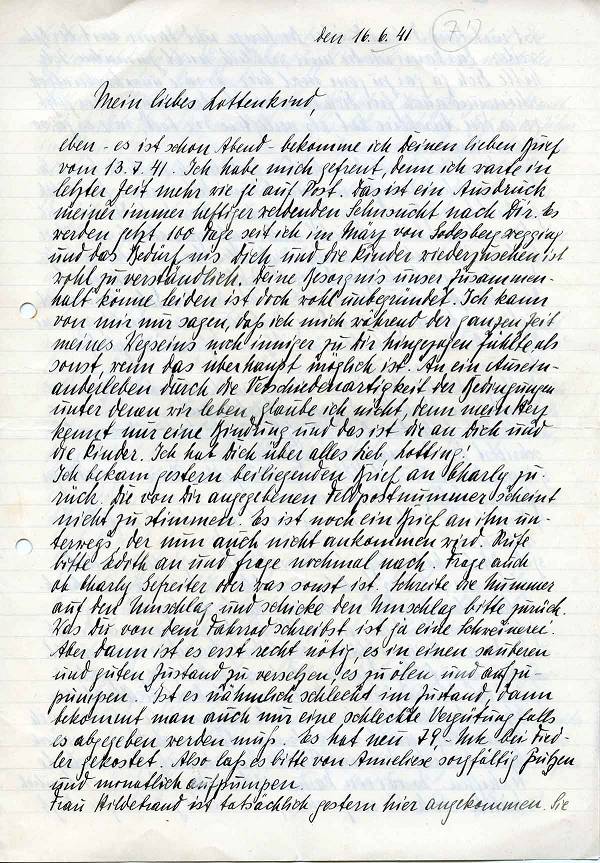 den 16.6.41 7.)
Mein liebes Lottenkind,
eben - es ist schon Abend - bekomme ich Deinen lieben Brief
vom 13.7.41. Ich habe mich gefreut, denn ich warte in
letzter Zeit mehr wie je auf Post. Das ist ein Ausdruck
meiner immer heftiger werdenden Sehnsucht nach Dir. Es
werden jetzt 100 Tage seit ich im März von Godesberg wegging
und das Bedürfnis Dich und die Kinder wiederzusehen ist
wohl zu verständlich. Deine Besorgnis unser Zusammen-
halt könne leiden ist doch wohl unbegründet. Ich kann
von mir nur sagen, daß ich mich während der ganzen Zeit
meines Wegseins noch inniger zu Dir hingezogen fühlte als
sonst, wenn das überhaupt möglich ist. An ein Ausein-
anderleben durch die Verschiedenartigkeit der Bedingungen
unter denen wir leben, glaube ich nicht, denn mein Herz
kennt nur eine Bindung und das ist die an Dich und
die Kinder. Ich hab Dich über alles lieb, Lotting!
Ich bekam gestern beiliegenden Brief an Charly zu-
rück. Die von Dir angegebenen Feldpostnummer scheint
nicht zu stimmen. Es ist noch ein Brief an ihn un-
terwegs, der nun auch nicht ankommen wird. Rufe
bitte Edith an und frage nochmal nach. Frage auch
ob Charly Gefreiter oder was sonst ist. Schreibe die Nummer
auf den Umschlag und schicke den Umschlag bitte zurück.
Was Du von dem Fahrrad schreibst ist ja eine Schweinerei.
Aber dann ist es erst recht nötig, es in einen sauberen
und guten Zustand zu versetzen, es zu ölen und aufzu-
pumpen. Ist es nähmlich schlecht im Zustand, dann
bekommt man auch nur eine schlechte Vergütung falls
es abgegeben werden muß. Es hat neu 79,- Mk. bei Fied-
ler gekostet. Also laß es bitte von Anneliese sorgfältig putzen
und monatlich aufpumpen.
Frau Hildebrand ist tatsächlich gestern hier angekommen. Sie